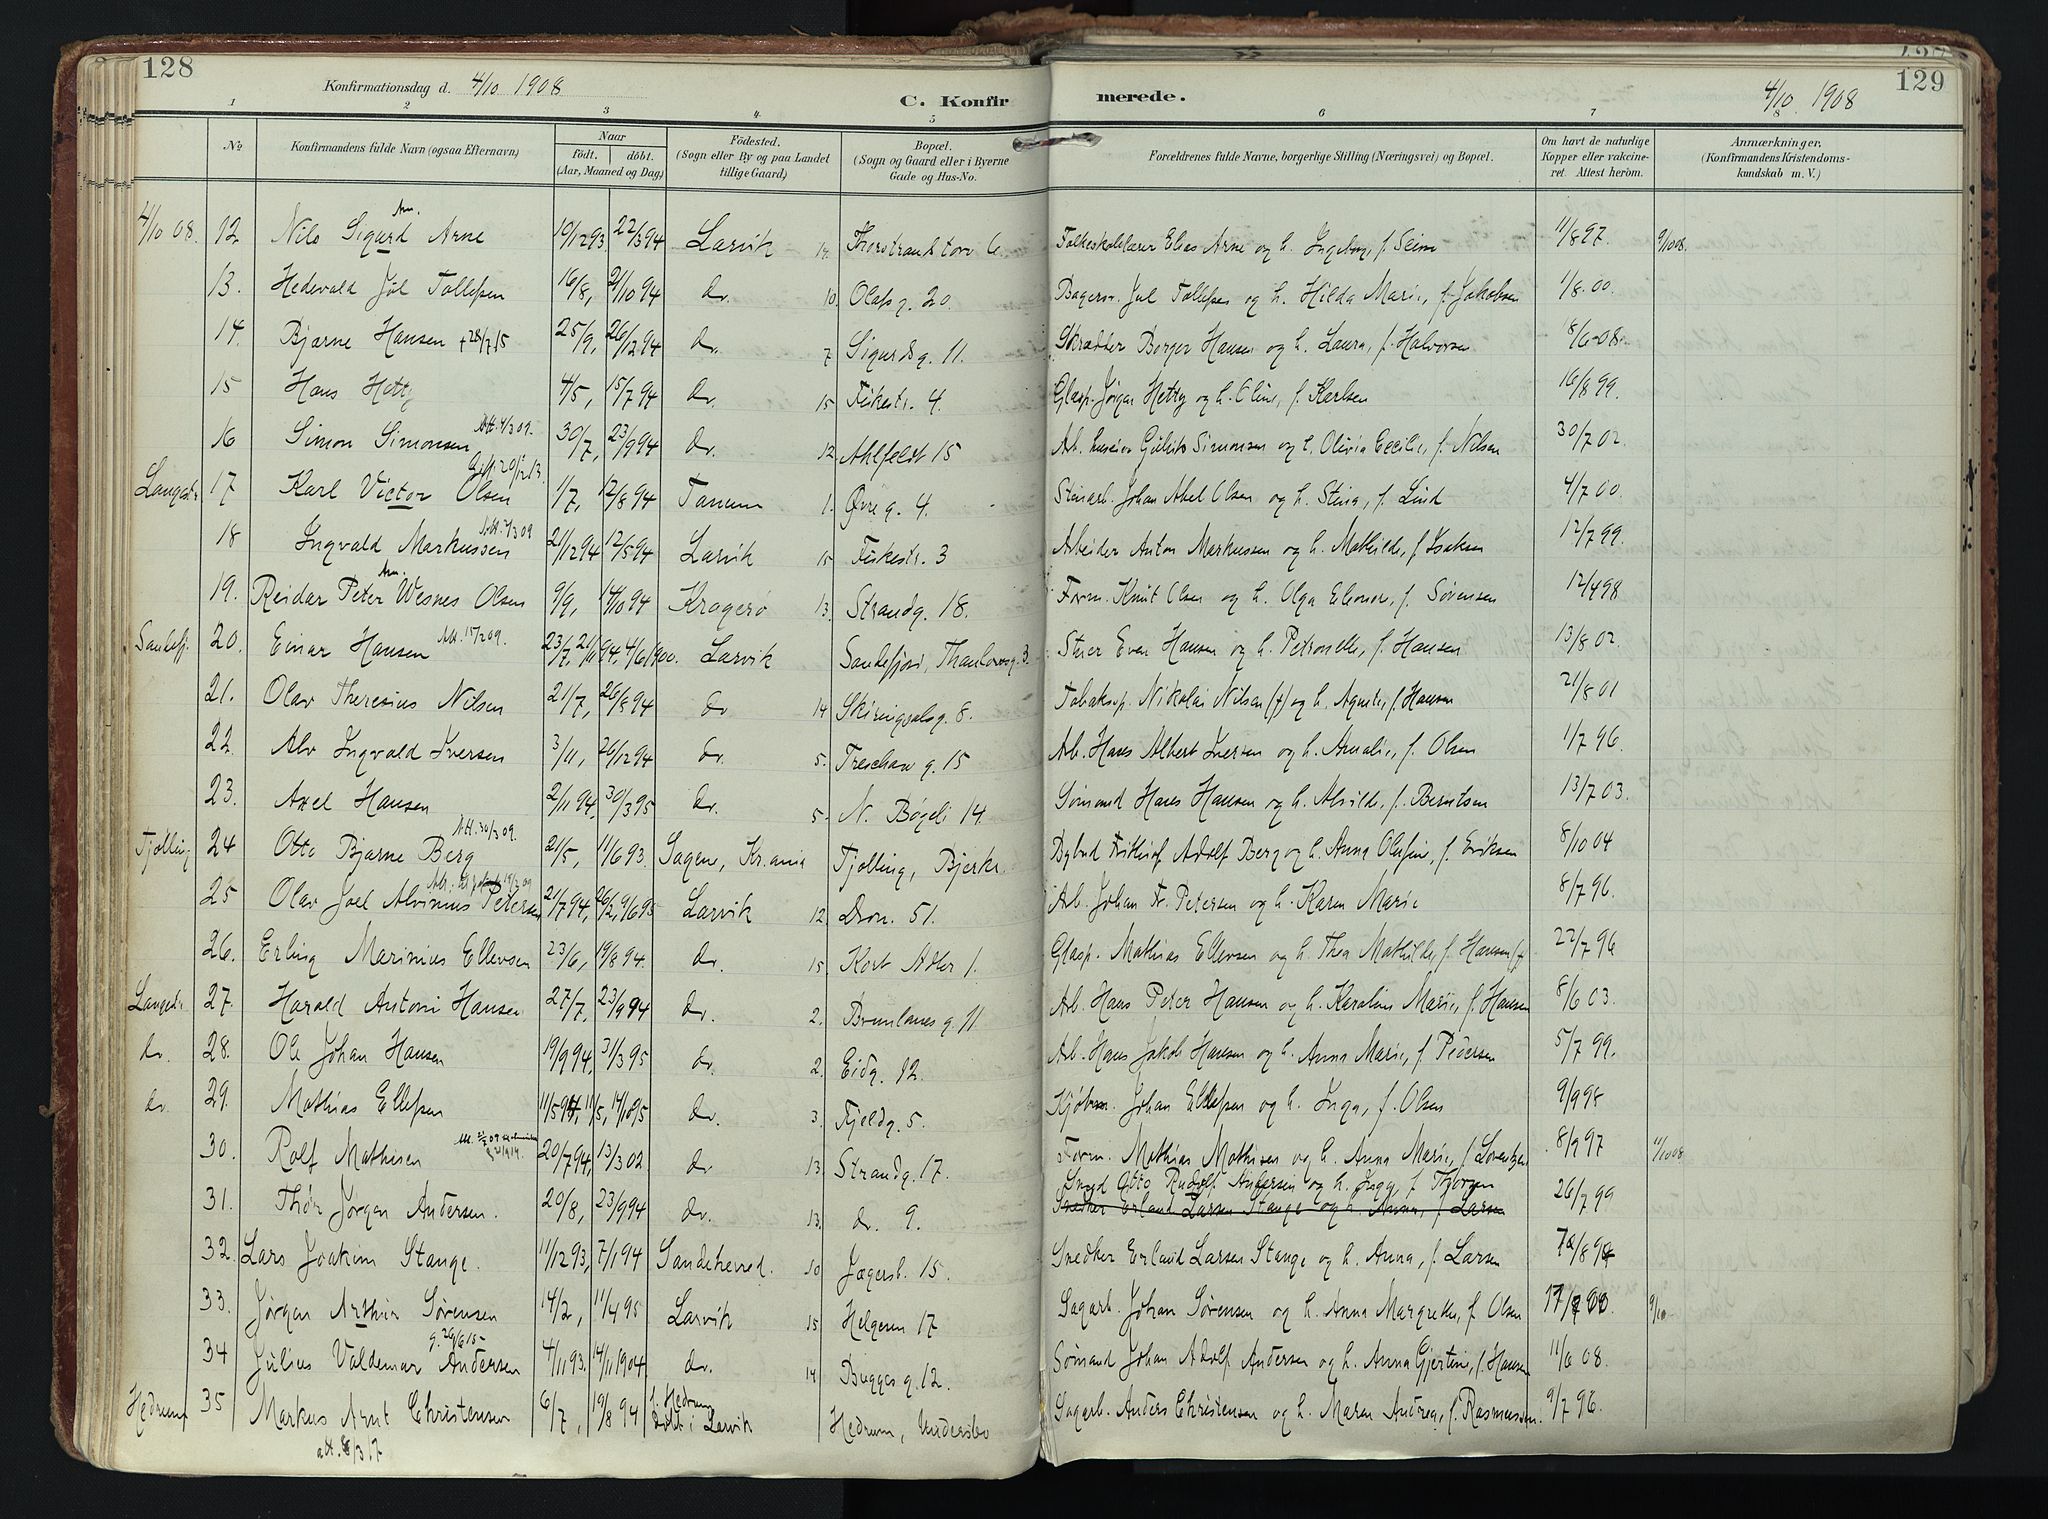 128
Konfirmationsdag d. 4/10 1908
C. Konfirmerede.
4/10 1908
129
1 2 3 4 5 6 7 8
No
Konfirmandens fulde Navn (ogsaa Efternavn)
Naar
födt. döbt.
(Aar, Maaned og Dag)
Födested.
(Sogn eller By og paa Landet
tillige Gaard)
Bopæl.
(Sogn og Gaard eller i Byerne
Gade og Hus-No.
Forældrenes fulde Navne, borgerlige Stilling (Næringsvei) og Bopæl.
Om havt de naturlige
Kopper eller vakcine-
ret. Attest herom.
Anmærkninger.
(Konfirmandens Kristendoms-
kundskab m. V.)
4/10 08. 12. Nils Sigurd Arne 10/12 93 22/3 94 Larvik Thorstrands torv 6. Folkeskolelærer Elias Arne og h. Ingeborg, f. Seim 11/8 97. 9/10 08.
13. Hedevald Jul Tollefsen 16/8, 21/10 94 do. 10. Olafsg. 20. Bagersv. Jul Tollefsen og h. Hilda Marie, f. Jakobsen 1/8 00.
14. Bjarne Hansen +28/7 15 25/9, 26/12 94 do. 7 Sigurdsg. 11. Skrædder Borger Hansen og h. Laura, f. Halvorsen 18/6 08.
15 Hans Hetty 4/5, 15/7 94 do. 15 Fiskestr. 4. Glasp. Jörgen Hetty og h. Oline, f. Karlsen 16/8 99.
16 Simon Simonsen Att. 4/3 09. 30/7, 23/9 94 do. 12. Ahlfeldt 15 Arb. Simonsen og h. Olivia Cecilie, f. Nilsen 30/7 02.
Langestr. 17 Karl Victor Olsen 1/7, 12/8 94 Tanum 1. Øvre g. 4. Stenarb. Johan Abel Olsen og h. Stina, f. Lind 4/7 00.
18 Ingvald Markussen 21/12 94 12/5 94 Larvik 15 Fiskestr. 3 Arbeider Anton Markussen og h. Mathilde, f. Isaksen 12/7 99.
19. Reidar Peter Wesnes Olsen 9/9, 14/10 94 Kragerø 13. Strandg. 18. Form. Knut Olsen og h. Olga Eleonore, f. Sørensen 12/4 98
Sandefj. 20. Einar Hansen Att. 15/2 09. Larvik Sandefjord, Thaulowsg. 3. Even Hansen og h. Petronelle, f. Hansen 13/8 02.
21. Olav Theresius Nilsen 21/7, 26/8 94 do 14 Skiringsalsg. 8. Tobakssp. Nikolai Nilsen (†) og h. Agnete, f. Hansen 21/8 01
22. Alv Ingvald Iversen 3/11, 26/12 94 do. 5. Treschow g. 15 Arb. Hans Albert Iversen og h. Amalie, f. Olsen 1/7 96.
23. Axel Hansen 2/11 94, 30/3 95 do. 5. N. Bögeli 14. Sømand Hans Hansen og h. Alvilde, f. Berntsen 13/7 03.
Tjølling 24 Otto Bjarne Berg Att. 30/3 09. 21/5, 11/6 93. Sagene, Kr.ania Tjølling, Bjerke Bybud Frithjof Adolf Berg og h. Anna Olufine, f. Eriksen 8/10 04
25 Olav Joel Alvinius Petersen 21/7 94, 9/6 95 Larvik 12. Dron. 51. Arb. Johan Fr. Petersen og h. Karen Marie 8/7 96.
26. Erling Marinius Ellevsen 23/6, 19/8 94. do. 15. Kort Adler 1. Glasp. Mathias Ellevsen og h. Thea Mathilde, f. Hansen (†) 22/7 96
Langestr. 27. Harald Antoni Hansen 27/7, 23/9 94 do. 2. Brunlanes g. 11. Arb. Hans Peter Hansen og h. Karoline Marie, f. Hansen 8/6 03.
do. 28. Ole Johan Hansen 19/9 94, 31/3 95 do. 2. Eidg. 12. Arb. Hans Jakob Hansen og h. Anna Marie, f. Pedersen 5/7 99.
do. 29. Mathias Ellefsen do. 3. Fjeldg. 5. Kjøbm. Johan Ellefsen og h. Inga, f. Olsen 9/9 95
30. Rolf Mathisen 20/7 94, 13/3 02. do 13. Strandg. 17. Form. Mathias Mathisen og h. Anna Marie, f. Lorentzen 8/9 97 11/10 08
31. Thor Jørgen Andersen. 20/8, 23/9 94 do. 13. do. 9. Sned Otto Rudolf Andersen og h. Inga, f. Thorsen 26/7 99
Snedker Erland Larsen Stange og h. Anna, f. Larsen
32. Lars Joakim Stange. 11/12 93, 7/1 94 Sandeherred. 10 Jægersb. 15. Snedker Erland Larsen Stange og h. Anna, f. Larsen
33. Jørgen Arthur Sørensen 14/2, 11/4 95 Larvik 15 Helgesen 17 Sagarb. Johan Sørensen og h. Anna Margrethe, f. Olsen 9/10
34 Julius Valdemar Andersen g. 26/6 15 4/11 93. 14/11 1904. do. 14 Bugges g. 12. Sømand Johan Adolf Andersen og h. Anna Gjertine, f. Hansen 11/6 08.
Hedrum 35 Markus Arnt Christensen 6/7, 19/8 94 f. Hedrum
döbt i Larvik Hedrum, Undersbo Sagarb. Anders Christensen og h. Maren Andrea, f. Rasmussen. 9/7 96.
att. 6/3 17